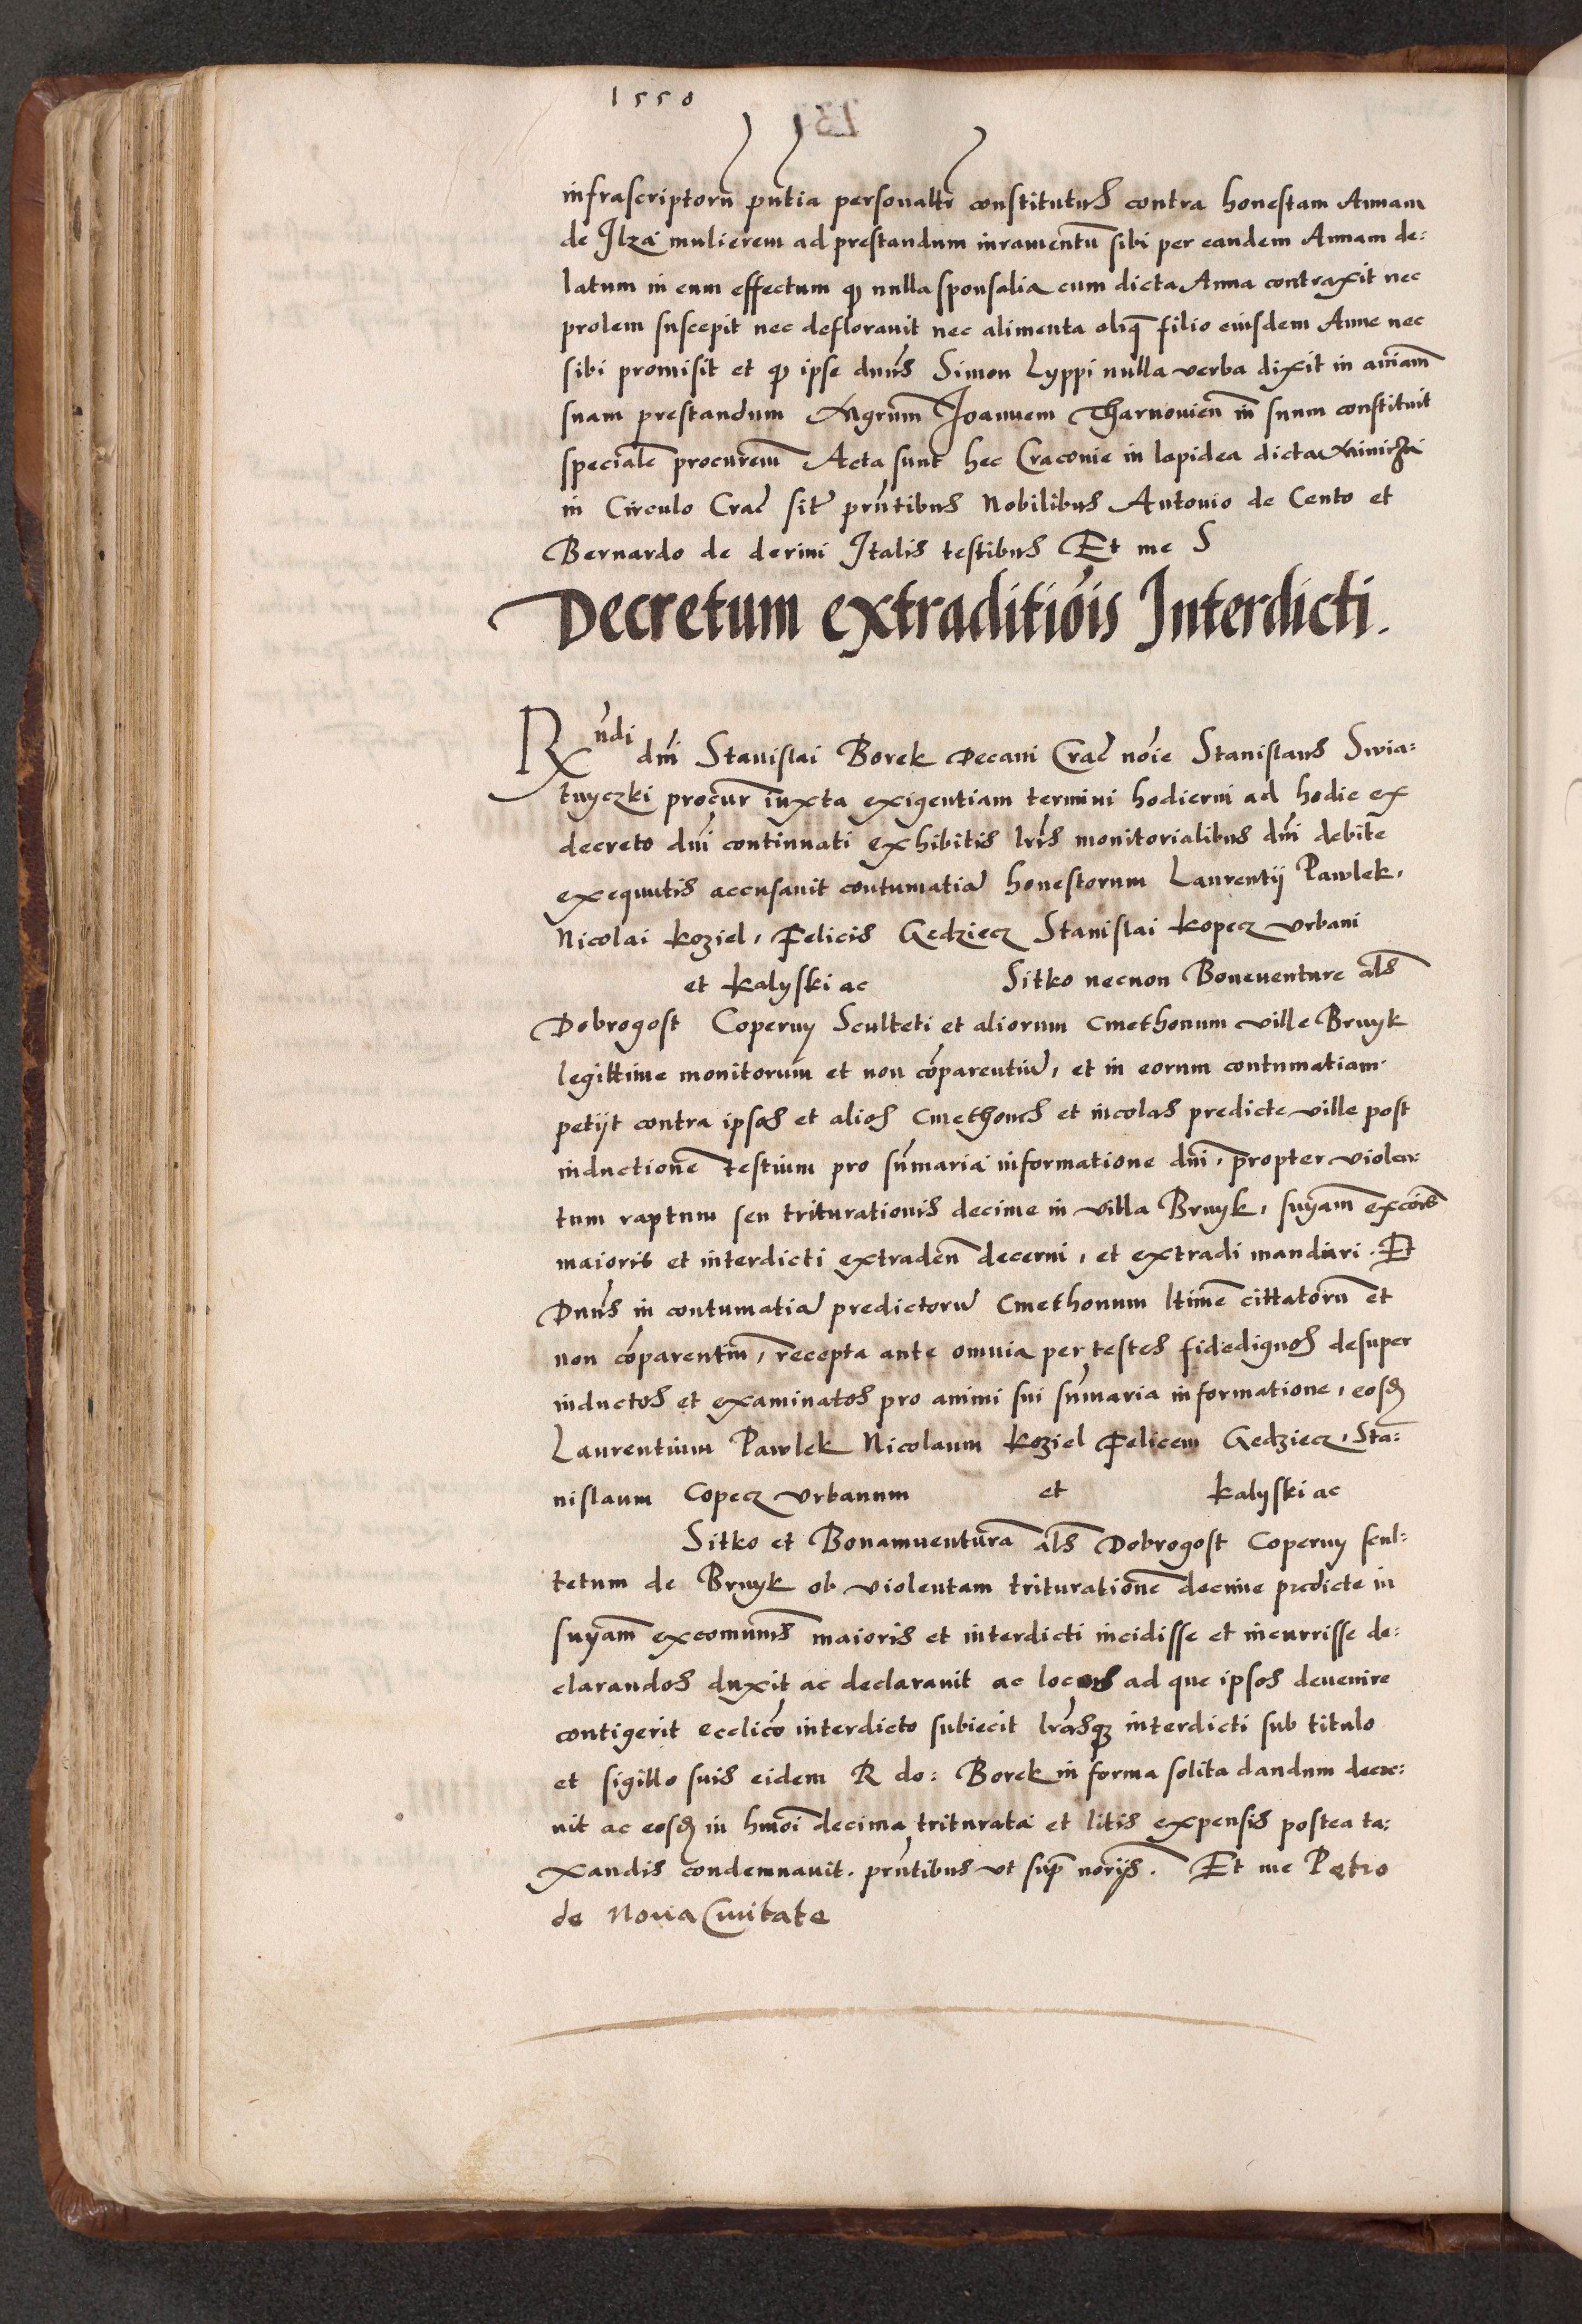 1550
infrascriptorū pn̄tia personalr̄ constitutus contra honestam Annam
de Ilza mulierem ad prestandum iuramentū sibi per eandem Annam de:
latum in eum effectum qƺ nulla sponsalia cum dicta Anna contraxit nec
prolem suscepit nec deflorauit nec alimenta aliq̄ filio eiusdem Anne nec
sibi promisit et qƺ ipse dnūs Simon Lyppi nulla verba dixit in aīam
suam prestandum Mgrūm Joannem Tharnouień in suum constituit
specialē procurem̄ Acta sunt hec Craconie in lapidea dicta
in Circulo Crac̄ sit̄ prn̄tibus Nobilibus Antonio de Cento et
Bernardo de derini Italis testibus Et me S
Decretum extraditiōis Interdicti.
Rn̄di dn̄i Stanislai Borek Decani Crac̄ nōīe Stanislaus Swia:
tnyczki procur̄ iuxta exigentiam termini hodierni ad hodie ex
decreto dn̄i continuati exhibitis lrīs monitorialibus dn̄i debite
exequutis accusauit contumatiā honestorum Laurentij Pawlek,
Nicolai koziel, Felicis Gedziecz Stanislai kopecz vrbani
et kalyski ac Sitko necnon Boneuenture als̄
Dobrogost Coperny Sculteti et aliorum Cmethonum ville Bruyk
legittime monitorum et non cōparentiū, et in eorum contumatiam
petijt contra ipsos et alios Cmethones et incolas predicte ville post
inductionē testium pro sūmaria informatione dn̄i, propter violen:
tum raptum seu triturationis decime in villa Bruyk, snīam excōis
maioris et interdicti extradeñ decerni, et extradi mandari. Et
Dnūs in contumatiā predictorū Cmethonum ltimē cittatorū et
non cōparentiū, recepta ante omnia per testes fidedignos desuper
inductos et examinatos pro animi sui sūmaria informatione, eosđ
Laurentium Pawlek Nicolaum koziel Felicem Gedziecz, Sta:
nislaum Copecz vrbanum et kalyski ac
Sitko et Bonamuenturā als̄ Dobrogost Coperny scul:
tetum de Bruyk ob violentam triturationē decime predicte in
snīam excomunīs maioris et interdicti incidisse et incurrisse de:
clarandos duxit ac declarauit ac ad que ipsos deuenire
contigerit ecclīco interdicto subiecit lrāsqƺ interdicti sub titulo
et sigillo suis eidem R do: Borek in forma solita dandum decre:
uit ac eosđ in hmōi decima triturata et litis expensis postea ta:
xandis condemnauit. prn̄tibus vt sup̄ norijs. Et me Petro
de Noua Ciuitate